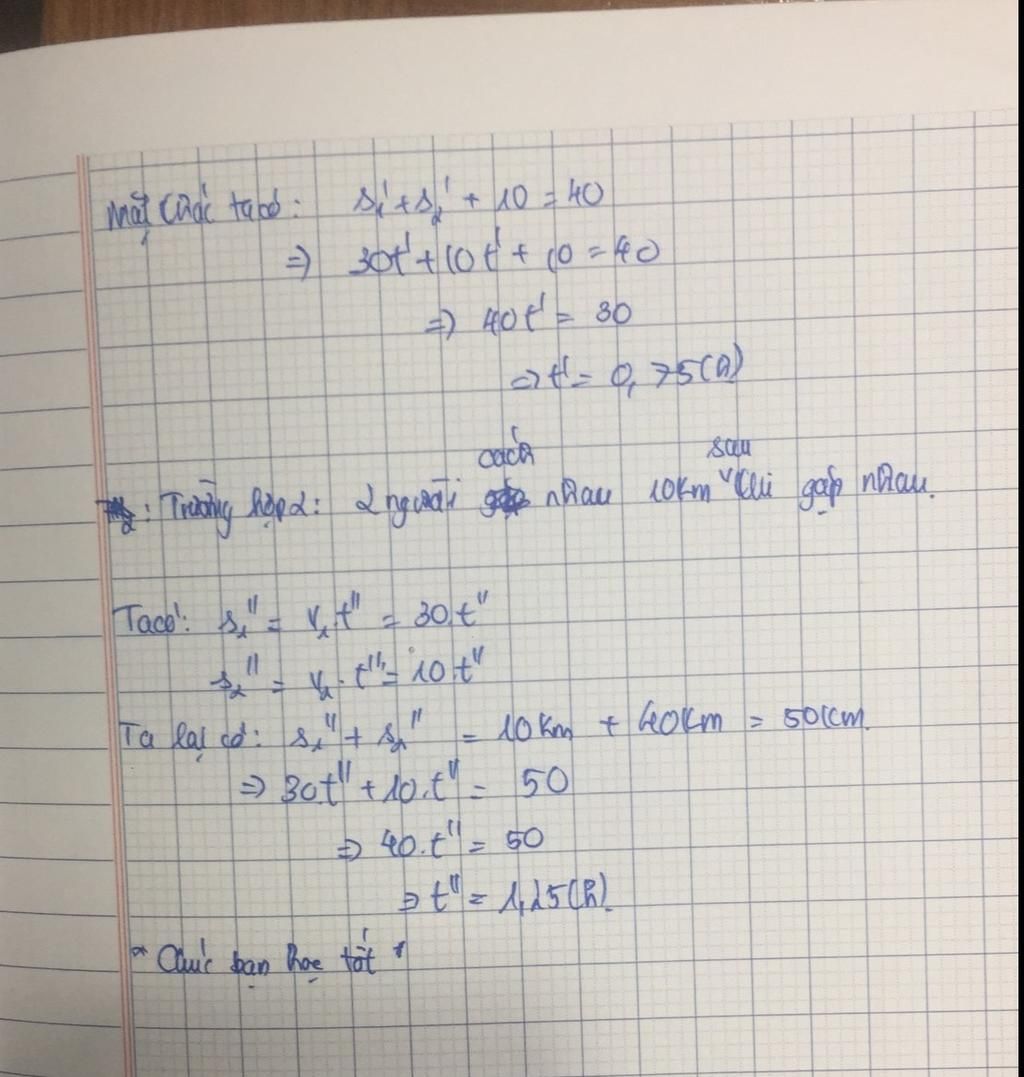 Mặt khác ta có: s₁' + s₂' + 10 = 40
=> 30t' + 10t' + 10 = 40
=> 40t' = 30
=> t' = 0,75(h)
: Trường hợp 2: 2 người cách nhau 10km sau khi gặp nhau.
Ta có: s₁'' = v₁t'' = 30.t''
s₂'' = v₂.t'' = 10.t''
Ta lại có: s₁'' + s₂'' = 10km + 40km = 50km
=> 30.t'' + 10.t'' = 50
=> 40.t'' = 50
=> t'' = 1,25(h).
* Chúc bạn học tốt *